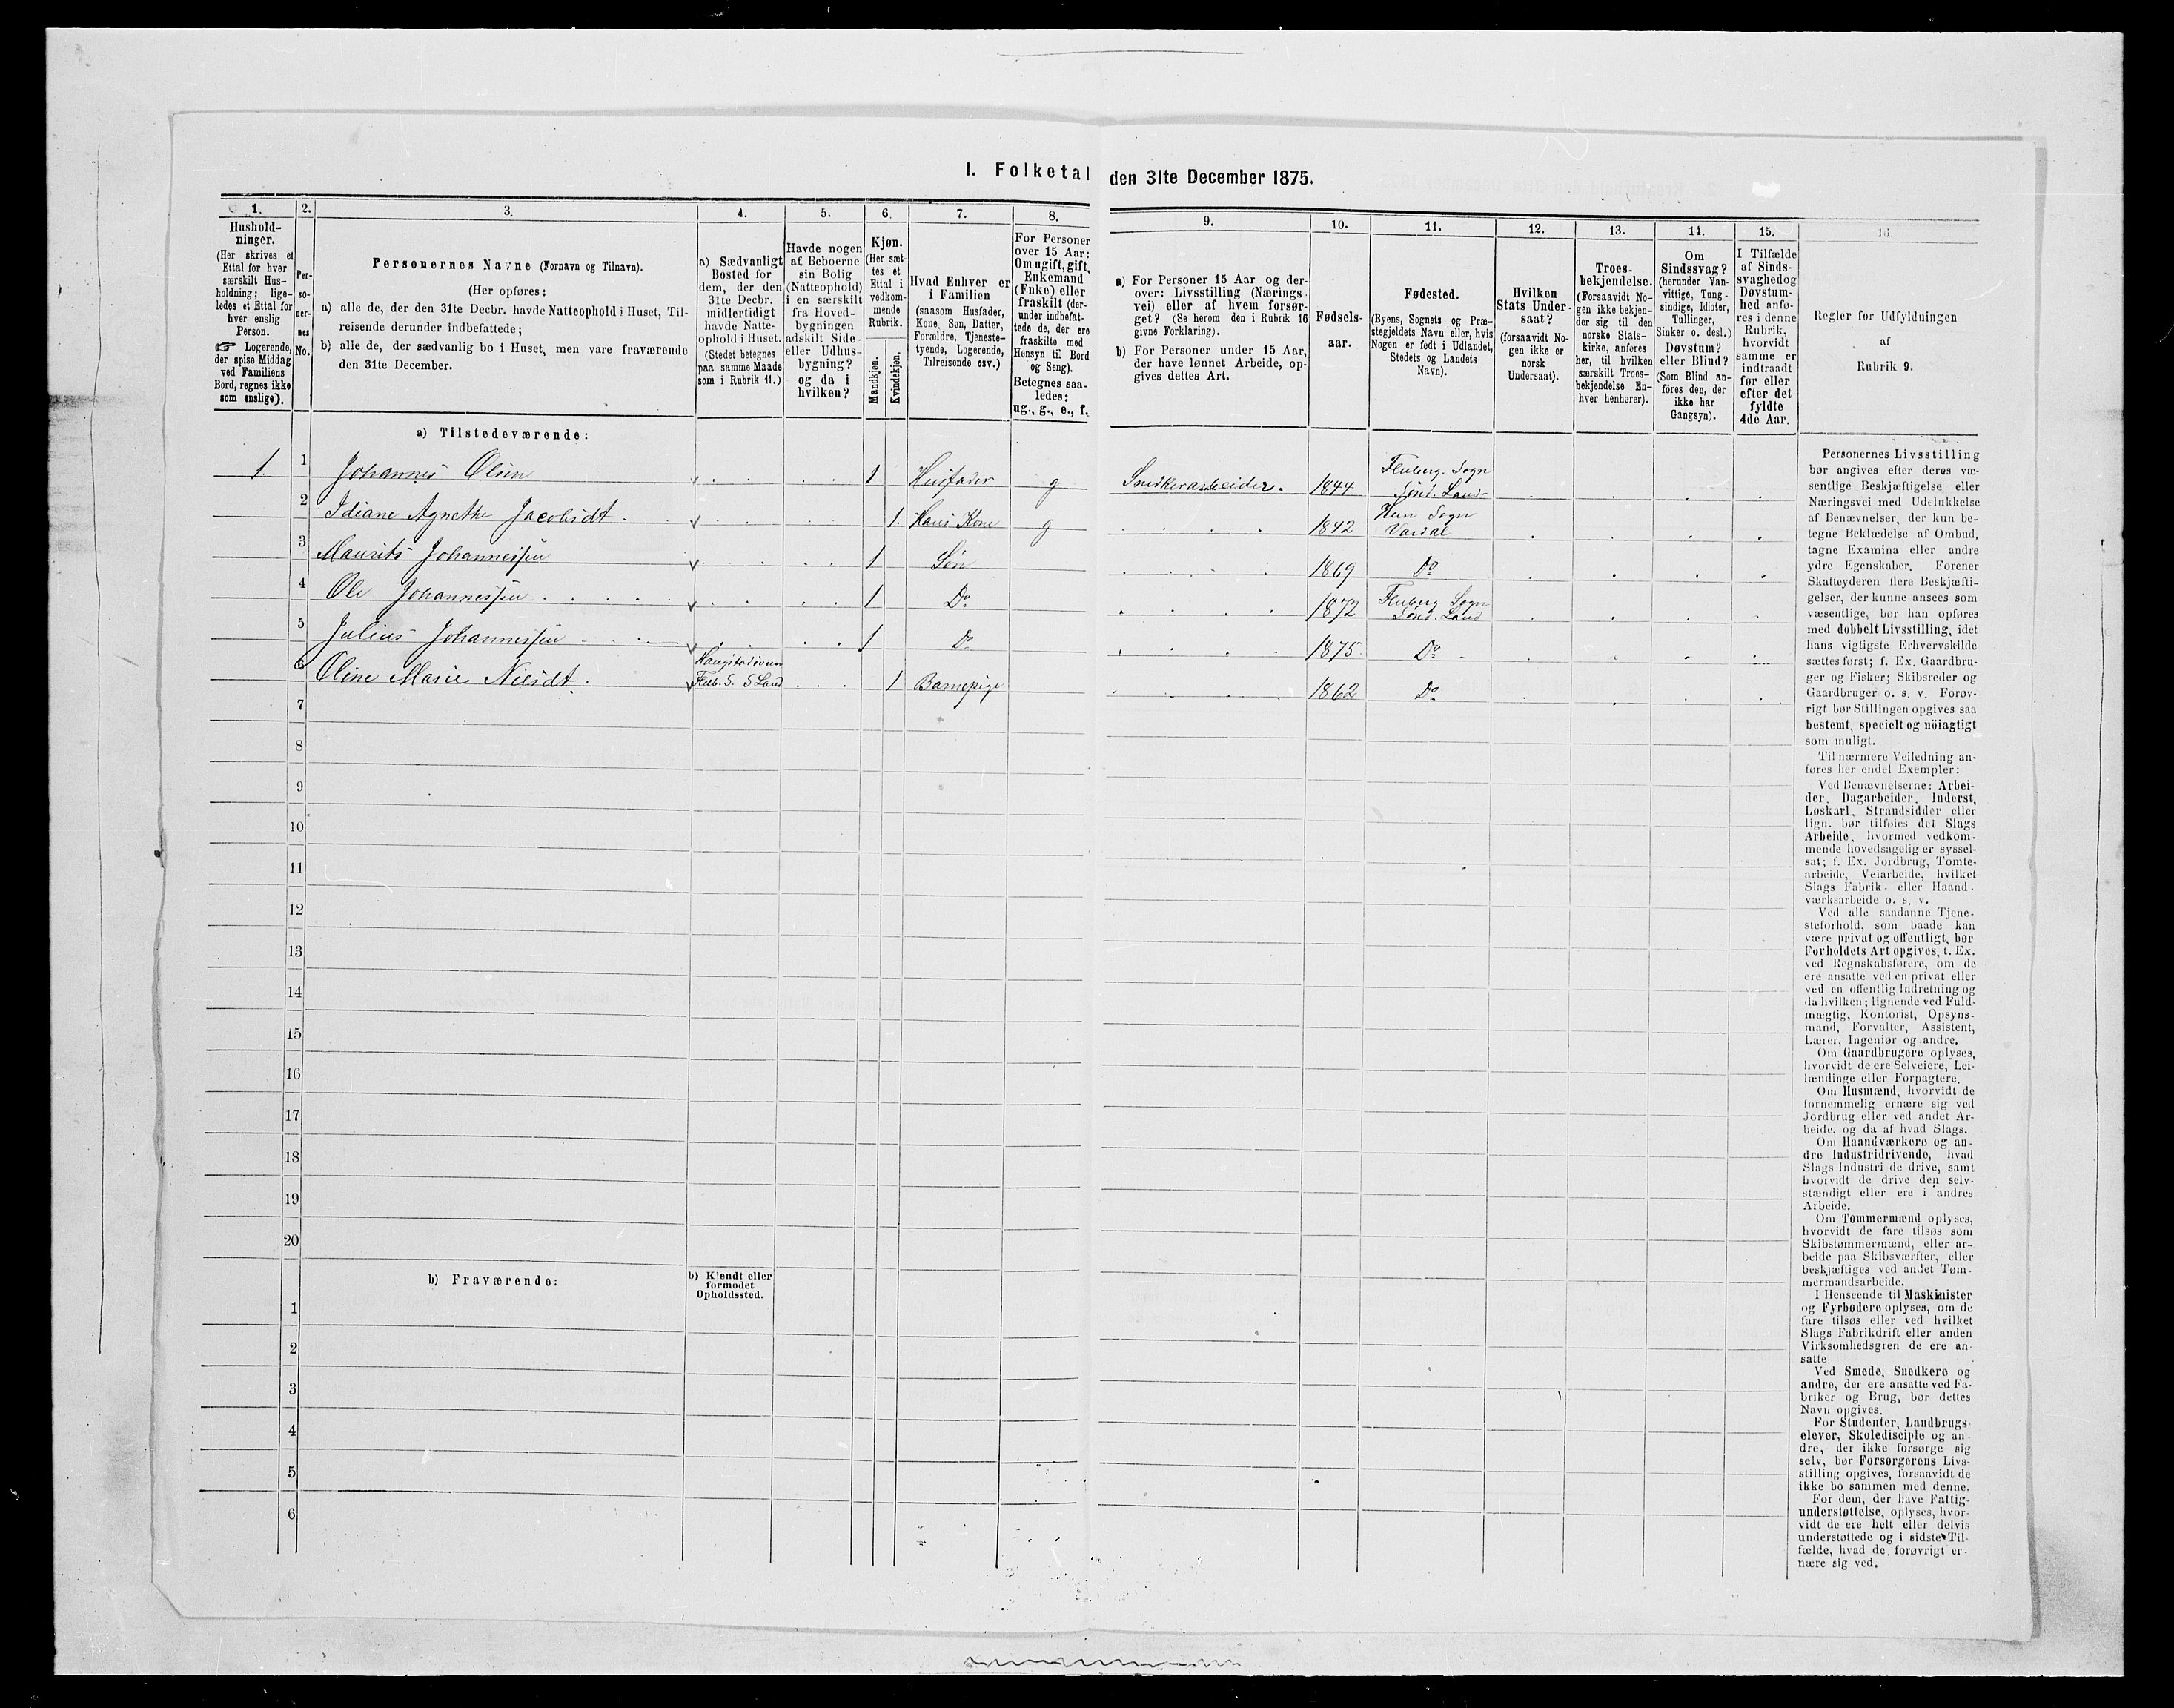 I. Folketal den 31te December 1875.
1.
Hushold-
ninger.
(Her skrives et
Ettal for hver
særskilt Hus-
holdning; lige-
ledes et Ettal for
hver enslig
Person.
☞ Logerende,
der spise Middag
ved Familiens
Bord, regnes ikke
som enslige).
2.
Per-
so-
ner-
nes
No.
3.
Personernes Navne (Fornavn og Tilnavn).
(Her opføres:
a) alle de, der den 31te Decbr. havde Natteophold i Huset, Til-
reisende derunder indbefattede;
b) alle de, der sædvanlig bo i Huset, men vare fraværende
den 31te December.
4.
a) Sædvanligt
Bosted for
dem, der den
31te Decbr.
midlertidigt
havde Natte-
ophold i Huset.
(Stedet betegnes
paa samme Maade
som i Rubrik 11.)
5.
Havde nogen
af Beboerne
sin Bolig
(Natteophold)
i en særskilt
fra Hoved-
bygningen
adskilt Side-
eller Udhus-
bygning?
og da i
hvilken?
6.
Kjøn.
(Her sæt-
tes et
Ettal i
vedkom-
mende
Rubrik.
Mandkjøn.
Kvindekjøn.
7.
Hvad Enhver er
i Familien
(saasom Husfader,
Kone, Søn, Datter,
Forældre, Tjeneste-
tyende, Logerende,
Tilreisende osv.)
8.
For Personer
over 15 Aar:
Om ugift, gift,
Enkemand
(Enke) eller
fraskilt (der-
under indbefat-
tede de, der ere
fraskilte med
Hensyn til Bord
og Seng).
Betegnes saa-
ledes:
ug., g., e., f.
9.
a) For Personer 15 Aar og der-
over: Livsstilling (Nærings-
vei) eller af hvem forsør-
get? (Se herom den i Rubrik 16
givne Forklaring).
b) For Personer under 15 Aar,
der have lønnet Arbeide, op-
gives dettes Art.
10.
Fødsels-
aar.
11.
Fødested.
(Byens, Sognets og Præ-
stegjeldets Navn eller, hvis
Nogen er født i Udlandet,
Stedets og Landets
Navn).
12.
Hvilken
Stats Under-
saat?
(forsaavidt No-
gen ikke er
norsk
Undersaat).
13.
Troes-
bekjendelse.
(Forsaavidt No-
gen ikke bekjen-
der sig til den
norske Stats-
kirke, anføres
her, til hvilken
særskilt Troes-
bekjendelse En-
hver henhører).
14.
Om
Sindssvag?
(herunder Van-
vittige, Tung-
sindige, Idioter,
Tullinger,
Sinker o. desl.)
Døvstum?
eller Blind?
(Som Blind an-
føres den, der
ikke har
Gangsyn).
15.
I Tilfælde
af Sinds-
svaghed og
Døvstum-
hed anfø-
res i denne
Rubrik,
hvorvidt
samme er
indtraadt
før eller
efter det
fyldte
4de Aar.
16.
Regler for Udfyldningen
af
Rubrik 9.
a) Tilstedeværende:
1 1 Johannes Olsen 1 Husfader g Snedkerarbeider. 1844 Fluberg Sogn Sønd. Land
2 Idiane Agnethe Jacobsdt 1. Hans Kone g 1842 Hun Sogn Vardal
3 Maurits Johannessen 1 Søn 1869 Do
4 Ole Johannessen 1 Do 1872 Fluberg Sogn Sønd. Land
5 Julius Johannessen 1 Do 1875. Do
6 Oline Marie Nilsdt. Flub. S. S Land 1 Barnepige 1862 Do
7
8
9
10
11
12
13
14
15
16
17
18
19
20
b) Fraværende:
b) Kjendt eller
formodet
Opholdssted.
1
2
3
4
5
6
Personernes Livsstilling
bør angives efter deres væ-
sentlige Beskjæftigelse eller
Næringsvei med Udelukkelse
af Benævnelser, der kun be-
tegne Beklædelse af Ombud,
tagne Examina eller andre
ydre Egenskaber. Forener
Skatteyderen flere Beskjæfti-
gelser, der kunne ansees som
væsentlige, bør han opføres
med dobbelt Livsstilling, idet
hans vigtigste Erhvervskilde
sættes først; f. Ex. Gaardbru-
ger og Fisker; Skibsreder og
Gaardbruger o. s. v. Forøv-
rigt bør Stillingen opgives saa
bestemt, specielt og nöiagtigt
som muligt.
Til nærmere Veiledning an-
føres her endel Exempler:
Ved Benævnelserne: Arbei-
der, Dagarbeider, Inderst,
Løskarl, Strandsidder eller
lign. bør tilføies det Slags
Arbeide, hvormed vedkom-
mende hovedsagelig er syssel-
sat; f. Ex. Jordbrug, Tomte-
arbeide, Veiarbeide, hvilket
Slags Fabrik- eller Haand-
værksarbeide o. s. v.
Ved alle saadanne Tjene-
steforhold, som baade kan
være privat og offentligt, bør
Forholdets Art opgives, t. Ex.
ved Regnskabsførere, om de
ere ansatte ved en privat eller
ved en offentlig Indretning og
da hvilken; lignende ved Fuld-
mægtig, Kontorist, Opsyns-
mand, Forvalter, Assistent,
Lærer, Ingeniør og andre.
Om Gaardbrugere oplyses,
hvorvidt de ere Selveiere, Lei-
lændinge eller Forpagtere.
Om Husmænd, hvorvidt de
fornemmelig ernære sig ved
Jordbrug eller ved andet Ar-
beide, og da af hvad Slags.
Om Haandværkere og an-
dre Industridrivende, hvad
Slags Industri de drive, samt
hvorvidt de drive den selv-
stændigt eller ere i andres
Arbeide.
Om Tømmermænd oplyses,
hvorvidt de fare tilsøs som
Skibstømmermænd, eller ar-
beide paa Skibsværfter, eller
beskjæftiges ved andet Tøm-
mermandsarbeide.
I Henseende til Maskinister
og Fyrbødere oplyses, om de
fare tilsøs eller ved hvilket
Slags Fabrikdrift eller anden
Virksomhedsgren de ere an-
satte.
Ved Smede, Snedkere og
andre, der ere ansatte ved Fa-
briker og Brug, bør dettes
Navn opgives.
For Studenter, Landbrugs-
elever, Skoledisciple og an-
dre, der ikke forsørge sig
selv, bør Forsørgerens Livs-
stilling opgives, forsaavidt de
ikke bo sammen med denne.
For dem, der have Fattig-
understøttelse, oplyses, hvor-
vidt de ere helt eller delvis
understøttede og i sidste Til-
fælde, hvad de forøvrigt er-
nære sig ved.